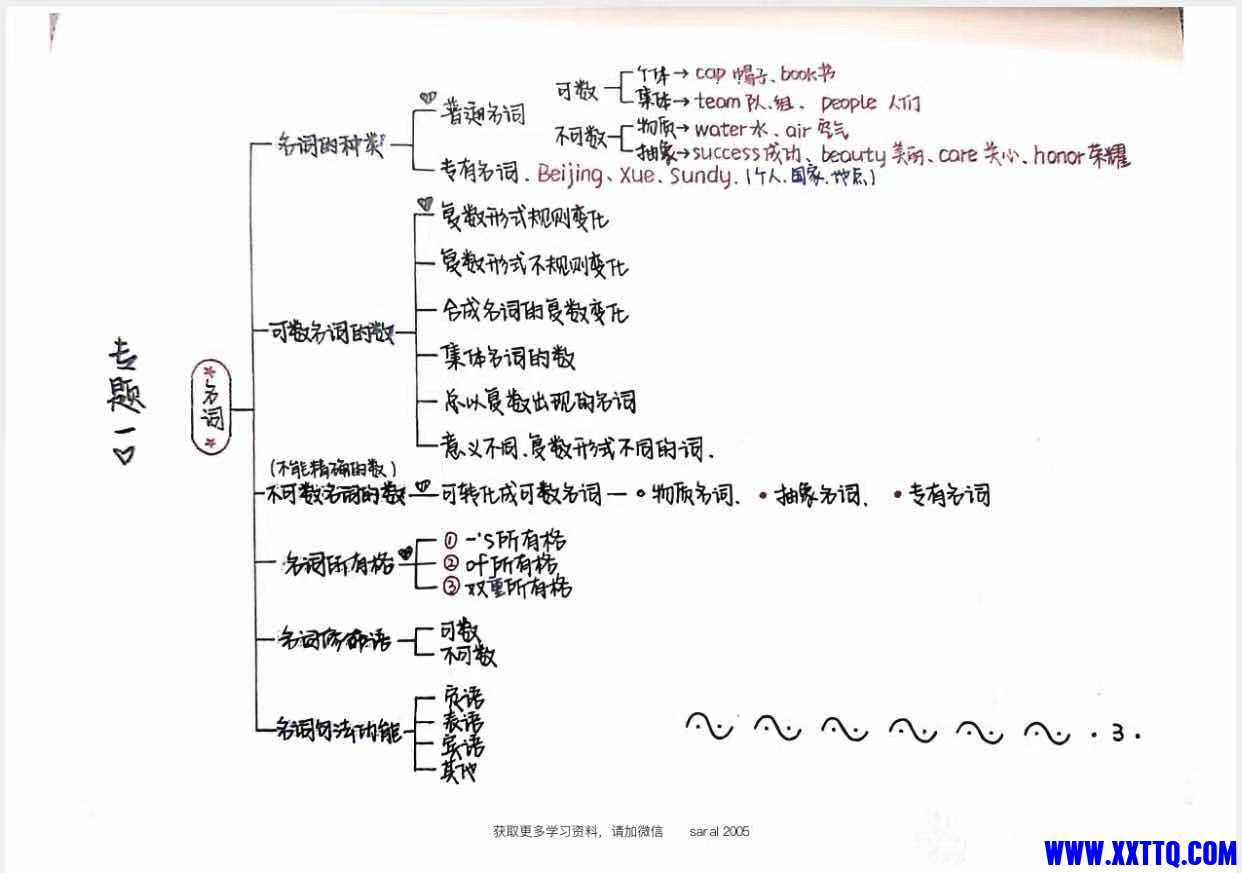 专题一
名词
名词的种类
普通名词
可数
个体→cap 帽子、book书
集体→team队、组、people 人们
不可数
物质→water水、air 空气
抽象→success成功、beauty美丽、care 关心、honor荣耀
专有名词、Beijing、Xue、Sundy.(个人.国家.地点)
可数名词的数
复数形式规则变化
复数形式不规则变化
合成名词的复数变化
集体名词的数
总以复数出现的名词
意义不同、复数形式不同的词.
(不能精确的数)
不可数名词的数
可转化成可数名词—•物质名词、•抽象名词、•专有名词
名词所有格
① -'s所有格
② of所有格
③ 双重所有格
名词修饰语
可数
不可数
名词句法功能
定语
表语
宾语
其他
·3·
获取更多学习资料，请加微信 saral 2005
WWW.XXTTQ.COM